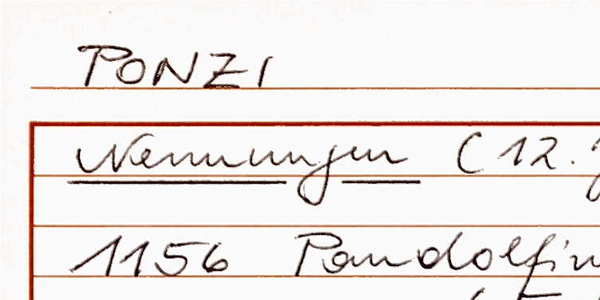 PONZI
Nennungen (12.
1156 Pandolfin